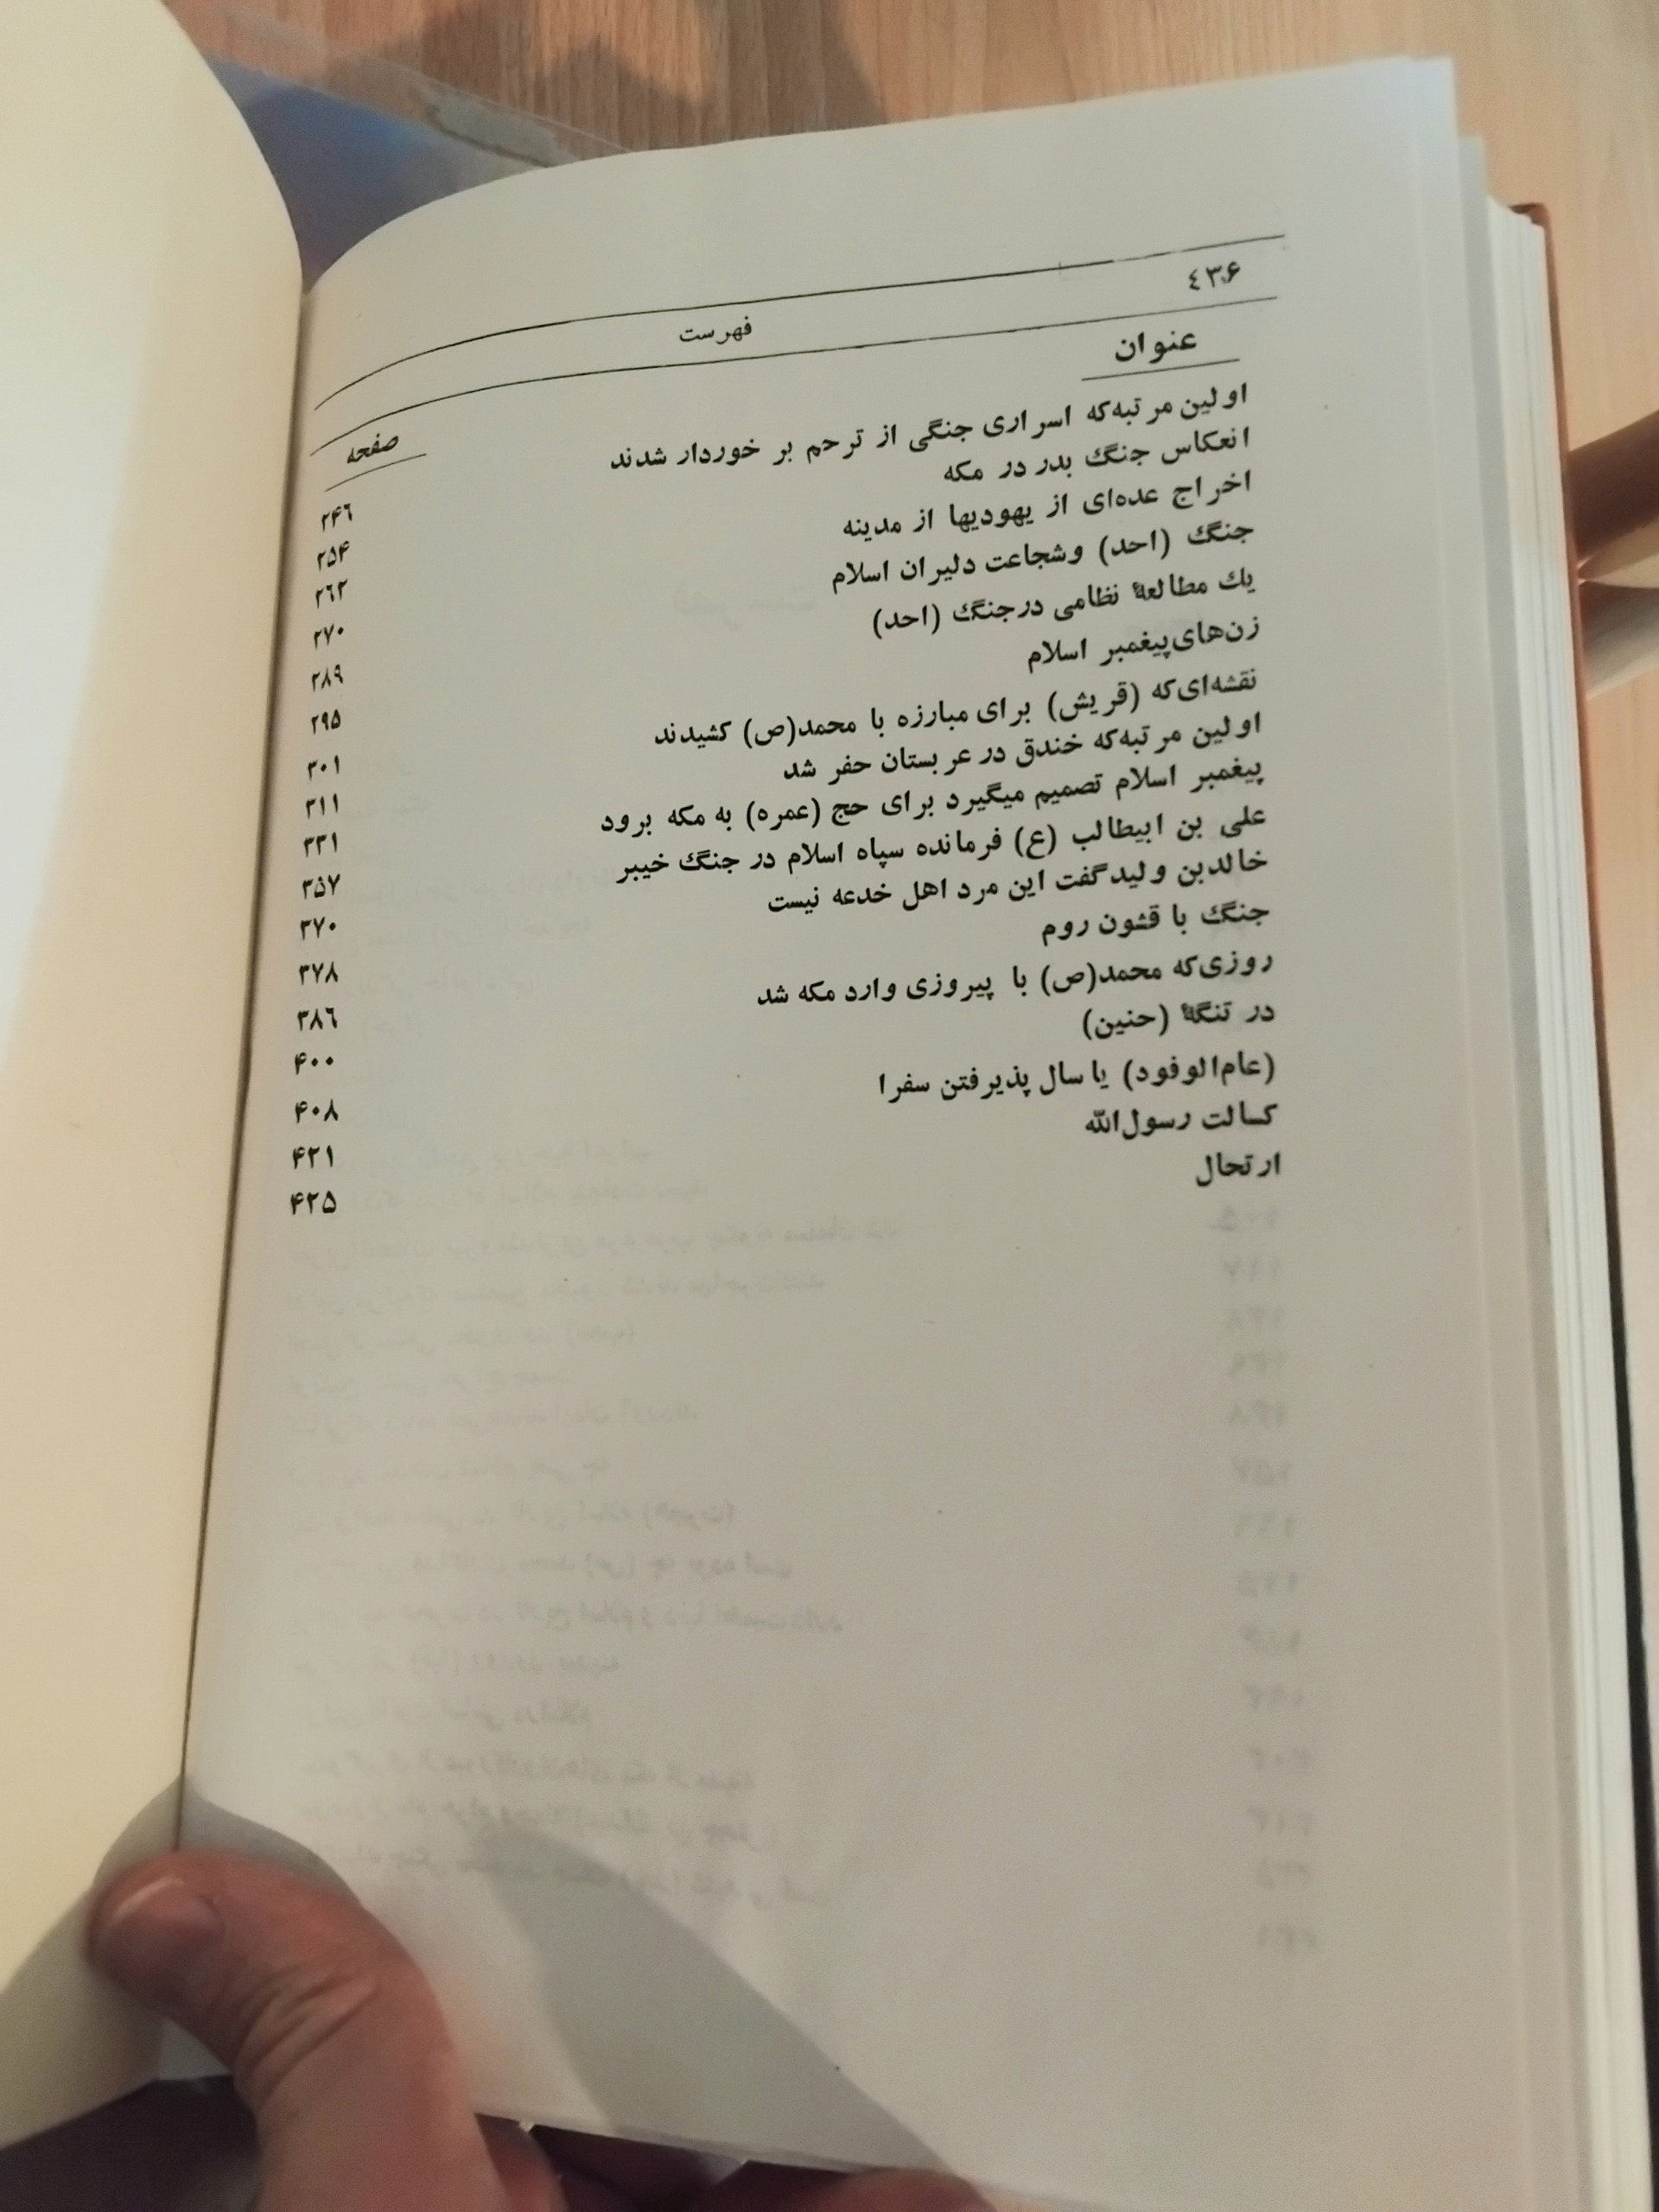 ۴۳۶
فهرست
عنوان صفحه
اولین مرتبه‌که اسراری جنگی از ترحم بر خوردار شدند ۲۴۶
انعکاس جنگ بدر در مکه ۲۵۴
اخراج عده‌ای از یهودیها از مدینه ۲۶۲
جنگ (احد) وشجاعت دلیران اسلام ۲۷۰
یك مطالعهٔ نظامی درجنگ (احد) ۲۸۹
زن‌های‌پیغمبر اسلام ۲۹۵
نقشه‌ای‌که (قریش) برای مبارزه با محمد(ص) کشیدند ۳۰۱
اولین مرتبه‌که خندق در عربستان حفر شد ۳۱۱
پیغمبر اسلام تصمیم میگیرد برای حج (عمره) به مکه برود ۳۳۱
علی بن ابیطالب (ع) فرمانده سپاه اسلام در جنگ خیبر ۳۵۷
خالدبن ولیدگفت این مرد اهل خدعه نیست ۳۷۰
جنگ با قشون روم ۳۷۸
روزی‌که محمد(ص) با پیروزی وارد مکه شد ۳۸۶
در تنگهٔ (حنین) ۴۰۰
(عام‌الوفود) یا سال پذیرفتن سفرا ۴۰۸
کسالت رسول‌الله ۴۲۱
ارتحال ۴۲۵